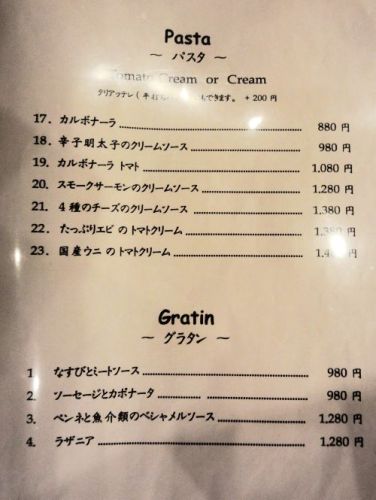 Pasta
～ パスタ ～
Tomato Cream or Cream
タリアッテレ ( 平打ち できます。 + 200 円
17. カルボナーラ 880 円
18. 辛子明太子のクリームソース 980 円
19. カルボナーラ トマト 1,080 円
20. スモークサーモンのクリームソース 1,280 円
21. 4種のチーズのクリームソース 1,380 円
22. たっぷりエビ の トマトクリーム 1,380 円
23. 国産ウニ の トマトクリーム 円
Gratin
～ グラタン ～
1 なすびとミートソース 980 円
2. ソーセージとカボナータ 980 円
3. ペンネと魚介類のベシャメルソース 1,280 円
4. ラザニア 1,280 円